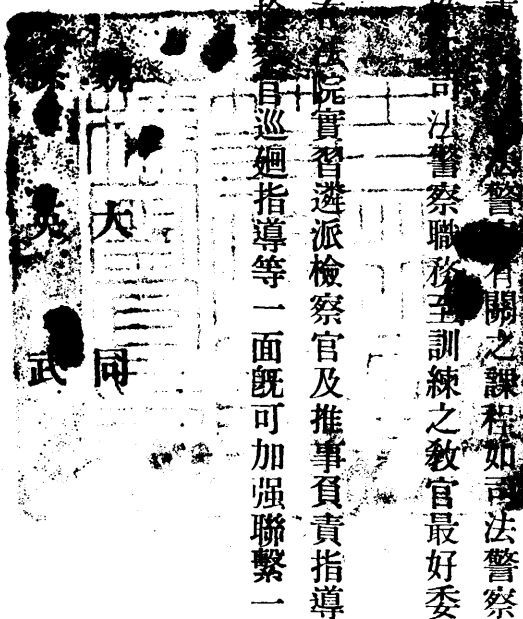 警察有關之課程如司法警察
司法警察職務至訓練之敎官最好委
法院實習遴派檢察官及推事負責指導
官巡廻指導等一面旣可加强聯繫一
大同
英武